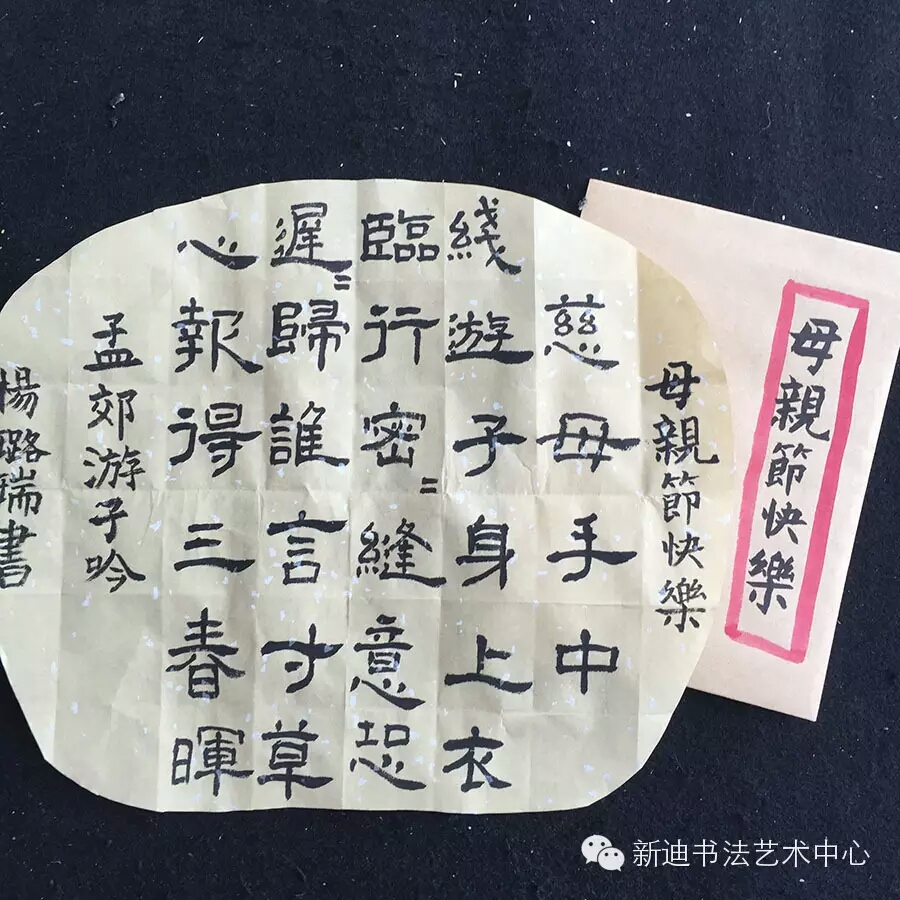 母親節快樂
母親節快樂
慈母手中
綫遊子身上衣
臨行密=縫意恐
遲=歸誰言寸草
心報得三春暉
孟郊游子吟
楊璐瑞書
新迪书法艺术中心